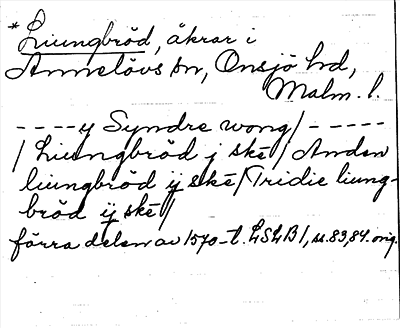 *Liungbröd, åkrar i
Annelövs sn, Onsjö hd,
Malm. l.
----y Syndre wong/-----
/Liungbröd j ské/Anden
liungbröd ÿ ské/Tridie liung-
bröd ÿ ské/
förra delen av 1570-t. LSLB1, ss. 83, 84. orig.